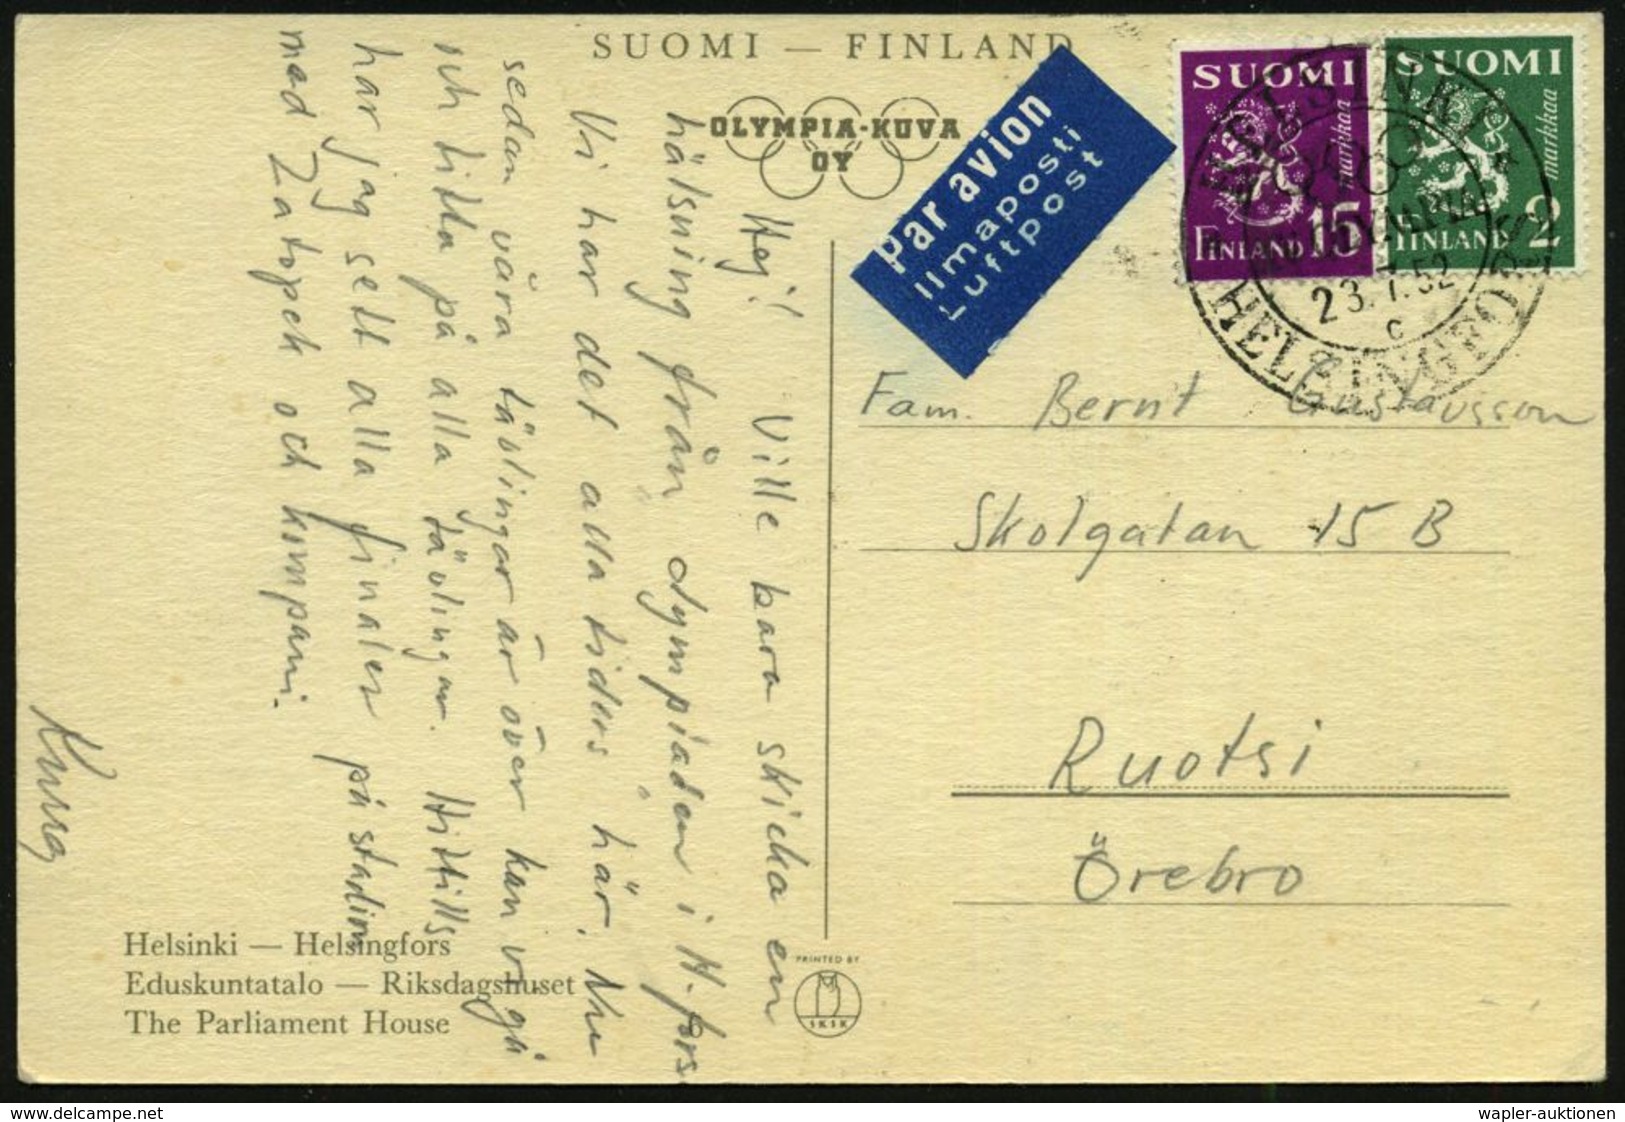 SUOMI — FINLAND
OLYMPIA-KUVA
OY
Par avion
Ilmaposti
Luftpost
SUOMI
markkaa
FINLAND 15
SUOMI
markkaa
FINLAND 2
HELSINKI
OLYMPIA
23.7.52
C
HELSINGFORS
Hej! Ville bara skicka en
hälsning från olympiaden i H-fors.
Vi har det alla tiders här. Nu
sedan våra tävlingar är över kan vi gå
och titta på alla tävlingar. Hittills
har jag sett alla finaler på stadion
med Zatopek och kompani.
Fam. Bernt Gustavsson
Skolgatan 15 B
Ruotsi
Örebro
Helsinki — Helsingfors
Eduskuntatalo — Riksdagshuset
The Parliament House
PRINTED BY
SKSK
www.delcampe.net
wapler-auktionen